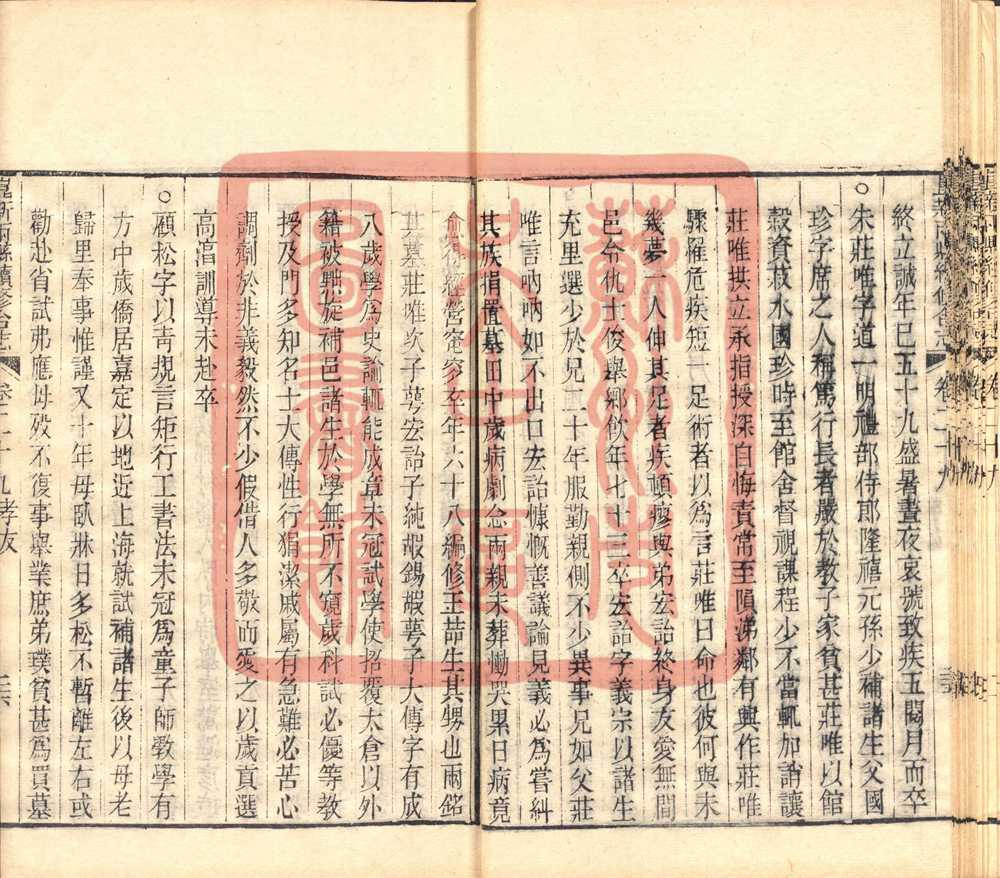 終立誠年已五十九盛暑晝夜哀號致疾五閱月而卒
○朱莊唯字道一明禮部侍郎隆禧元孫少補諸生父國
珍字席之人稱篤行長者嚴於教子家貧甚莊唯以館
穀資菽水國珍時至館舍督視課程少不當輒加誚讓
莊唯拱立承指授深自悔責常至隕涕鄰有與作莊唯
驟罹危疾短一足術者以為言莊唯曰命也彼何與未
幾夢一人伸其足者疾頓瘳與弟宏詒終身友愛無間
邑令仇士俊舉鄉飲年七十三卒宏詒字義宗以諸生
充里選少於兄二十年服勤親側不少異事兄如父莊
唯言吶吶如不出口宏詒慷慨善議論見義必為嘗糾
其族捐置墓田中歲病劇念兩親未葬慟哭累日病竟
愈得經營窀穸卒年六十八編修王喆生其甥也兩銘
其墓莊唯次子蕚宏詒子純嘏錫嘏蕚子大傳字有成
八歲學為史論輒能成章未冠試學使招覆太倉以外
籍被黜旋補邑諸生於學無所不窺歲科試必優等教
授及門多知名士大傳性行狷潔戚屬有急難必苦心
調劑於非義毅然不少假借人多敬而愛之以歲貢選
高淯訓導未赴卒
○顧松字以青規言矩行工書法未冠為童子師教學有
方中歲僑居嘉定以地近上海就試補諸生後以母老
歸里奉事惟謹又十年母臥牀日多松不暫離左右或
勸赴省試弗應母歿不復事舉業庶弟璞貧甚為買墓
崑新兩縣續修合志
卷二十九孝友